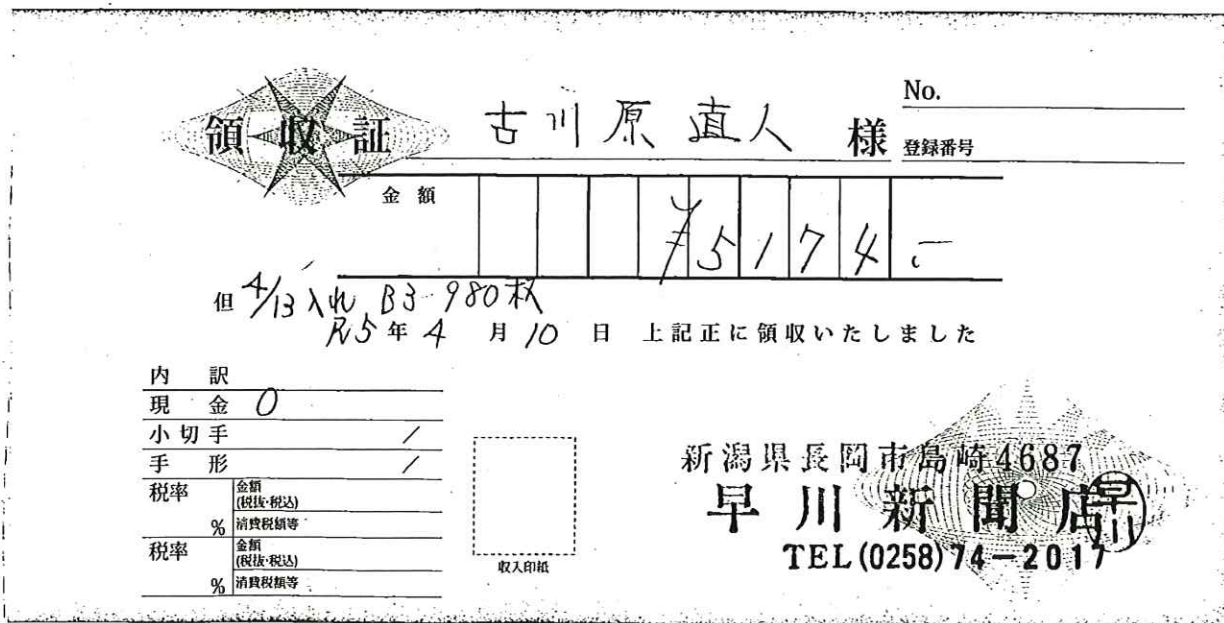 領収証 古川原 直人 様
No.
登録番号
金額 ¥5174.-
但 4/13入れ B3 980枚
R5年4月10日 上記正に領収いたしました
内訳
現金 0
小切手 /
手形 /
税率 % 金額(税抜・税込)
消費税額等
税率 % 金額(税抜・税込)
消費税額等
収入印紙
新潟県長岡市島崎4687
早川新聞店 早川
TEL(0258)74-2017